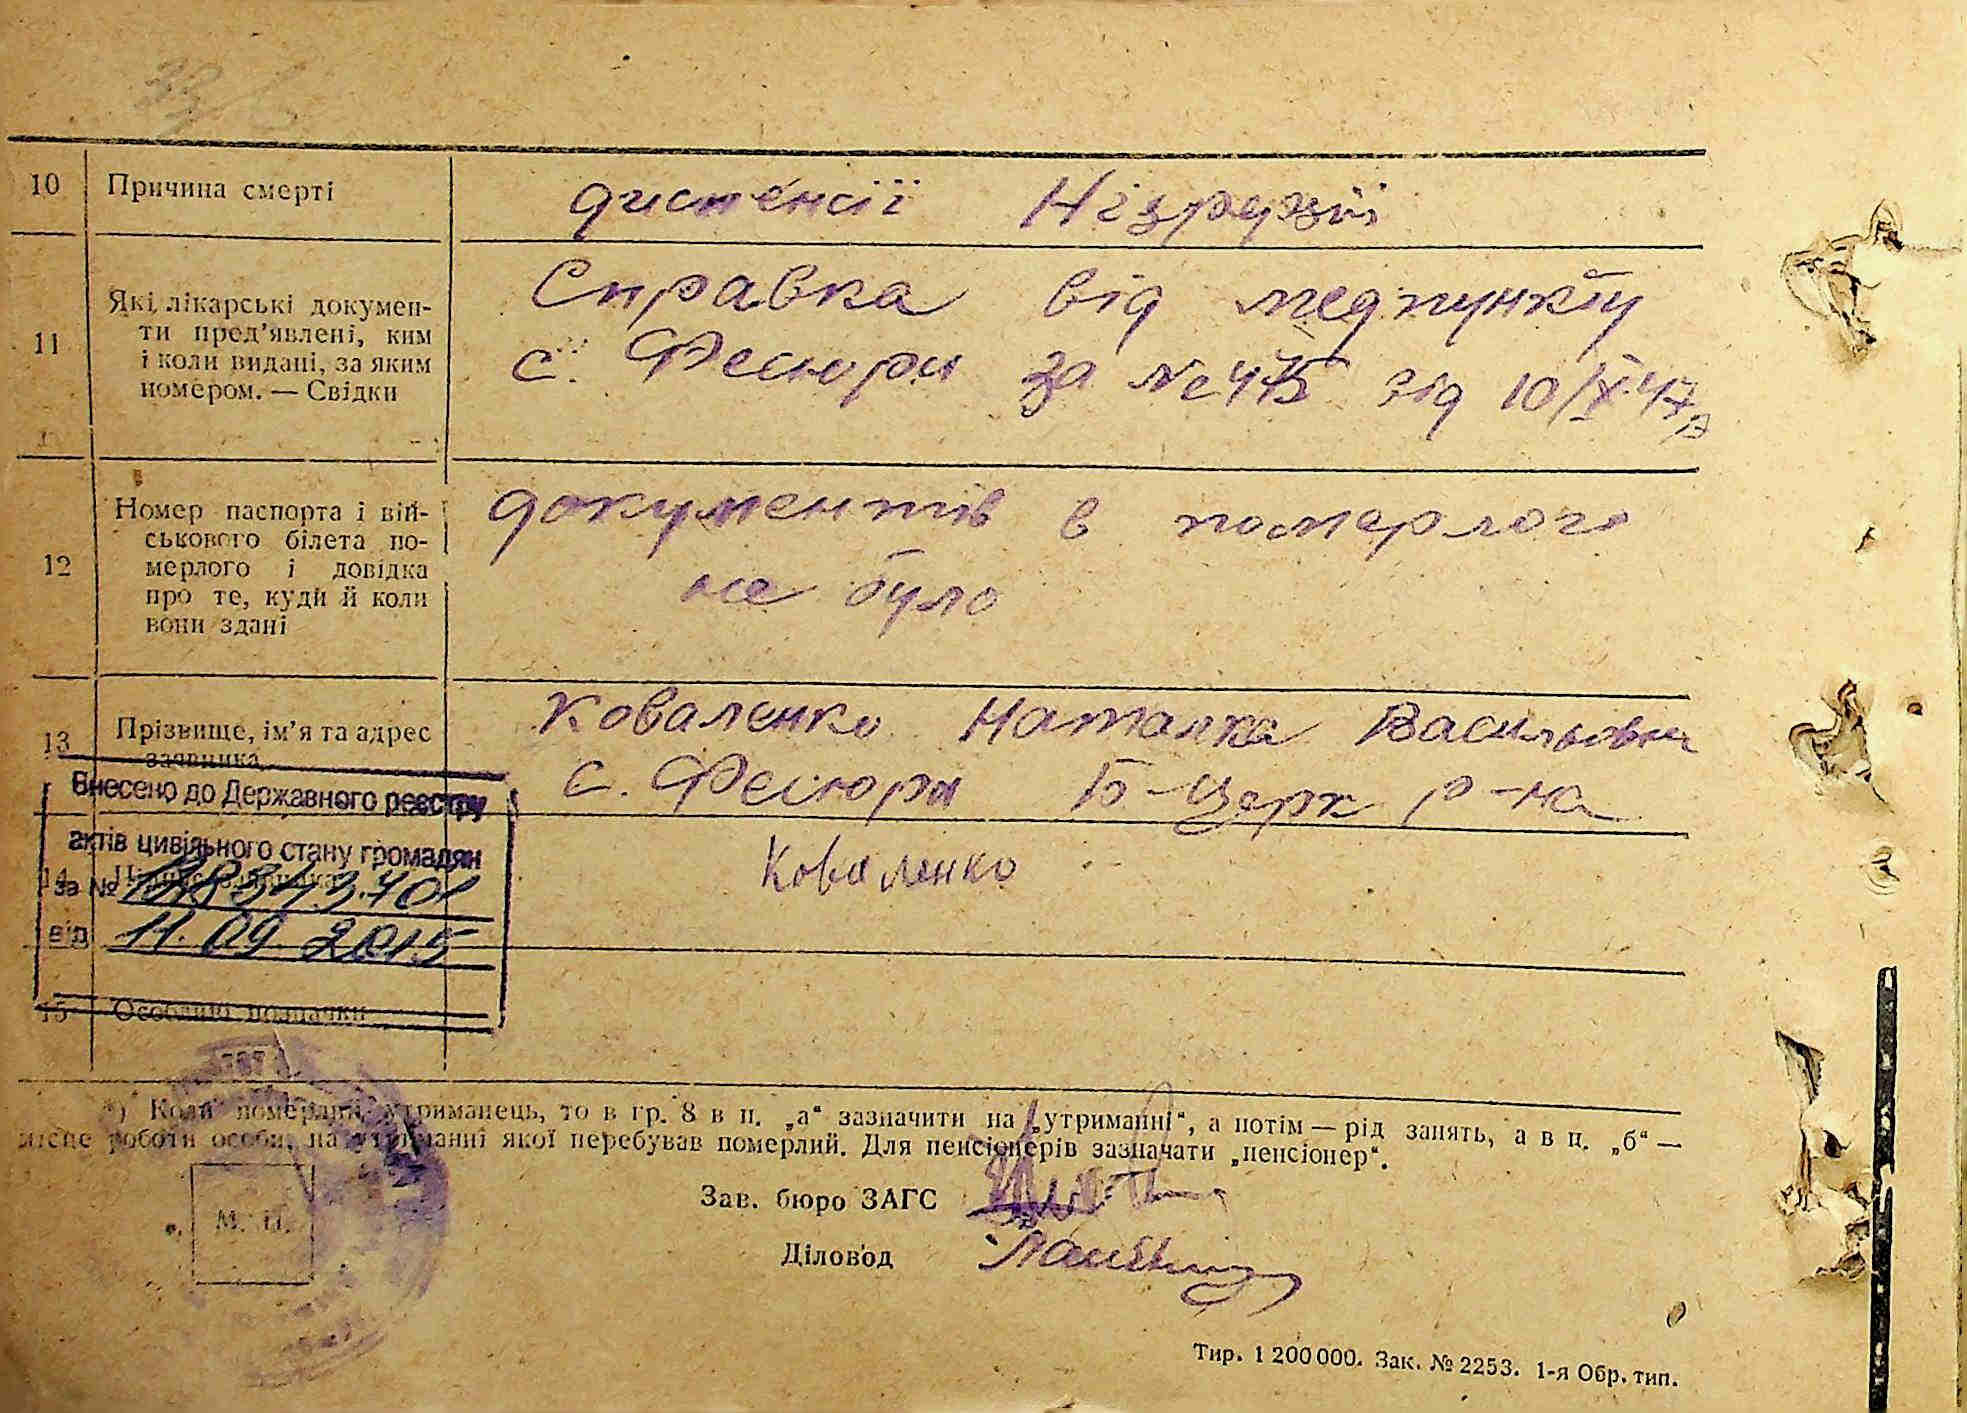 10 Причина смерті
11 Які лікарські докумен-
ти пред’явлені, ким
і коли видані, за яким
номером. — Свідки
Справка від медпункту
с. Фесюри за № 475 від 10/IX-47 р
12 Номер паспорта і вій-
ськового білета по-
мерлого і довідка
про те, куди й коли
вони здані
документів в померлого
не було
13 Прізвище, ім’я та адрес
заявника
Коваленко Наталка Васильовна
с. Фесюри Б-Церк р-на
Внесено до Державного реєстру
актів цивільного стану громадян
за №
від 11.09.2015
14
Коваленко
15 Особливі позначки
*) Коли померлий утриманець, то в гр. 8 в п. „а“ зазначити на „утриманні“, а потім — рід занять, а в п. „б“ —
місце роботи особи, на утриманні якої перебував померлий. Для пенсіонерів зазначати „пенсіонер“.
Зав. бюро ЗАГС
М. П.
Діловод
Тир. 1 200 000. Зак. № 2253. 1-я Обр. тип.